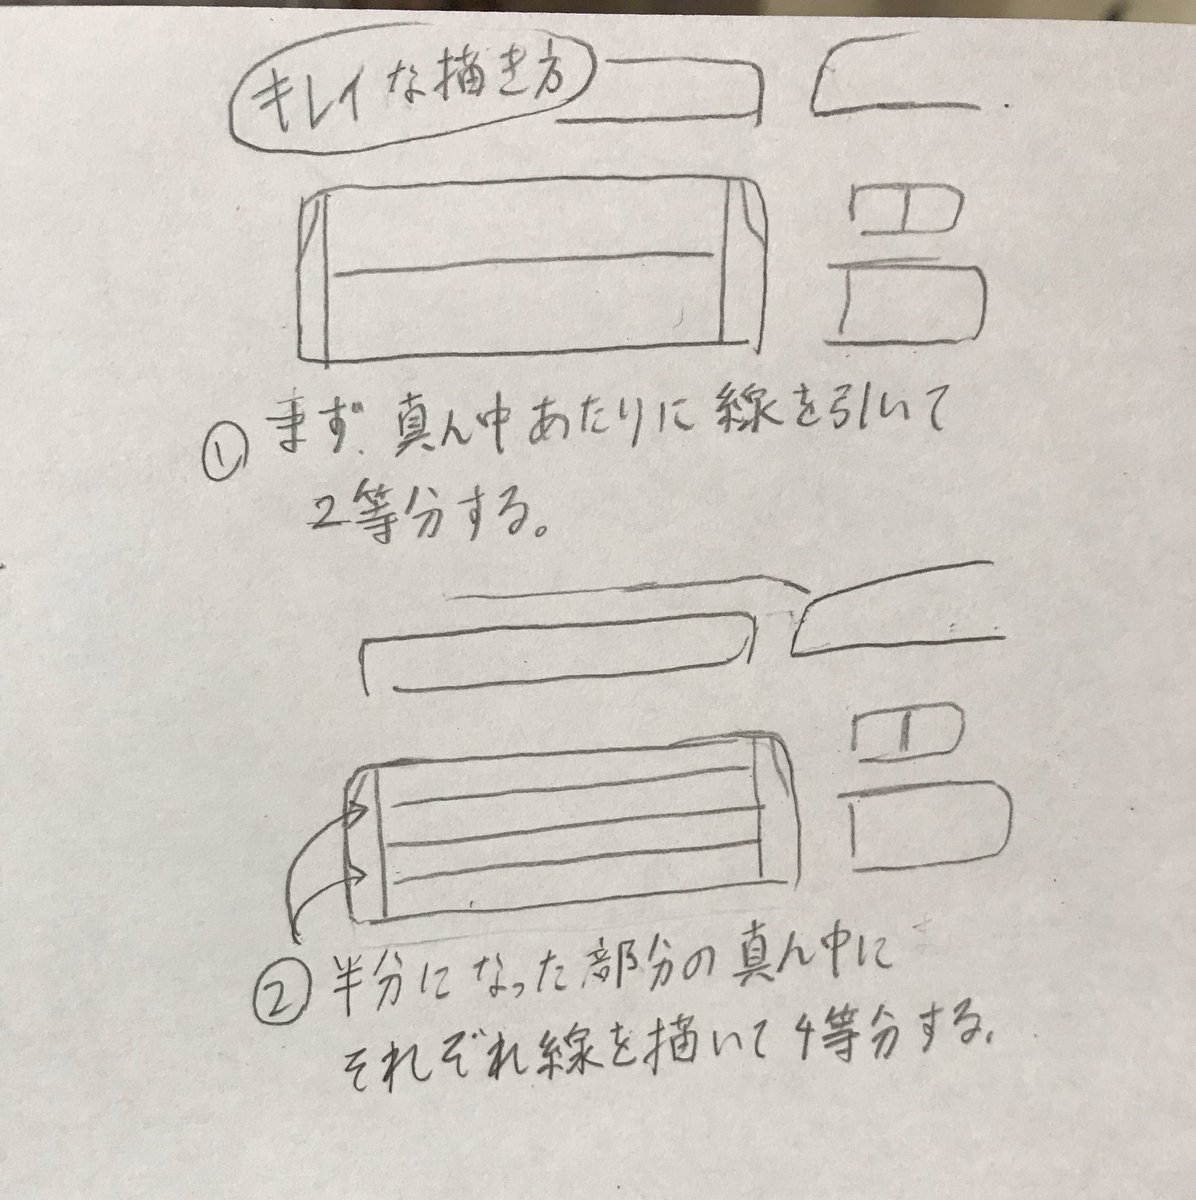 キレイな描き方
① まず、真ん中あたりに線を引いて
2等分する。
② 半分になった部分の真ん中に
それぞれ線を描いて4等分する。